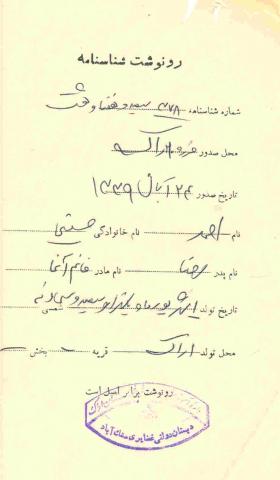 رونوشت شناسنامه
شماره شناسنامه ۳۷۸ سیصد و هفتاد و هشت
محل صدور اراک
تاریخ صدور ۲۴ آبان ۱۳۳۹
نام احمد نام خانوادگی حسینی
نام پدر رضا نام مادر خانم آغا
تاریخ تولد شهریور ماه یکهزار سیصد و سی
محل تولد اراک قریه بخش
رونوشت برابر اصل است
دبستان دولتی غفاری